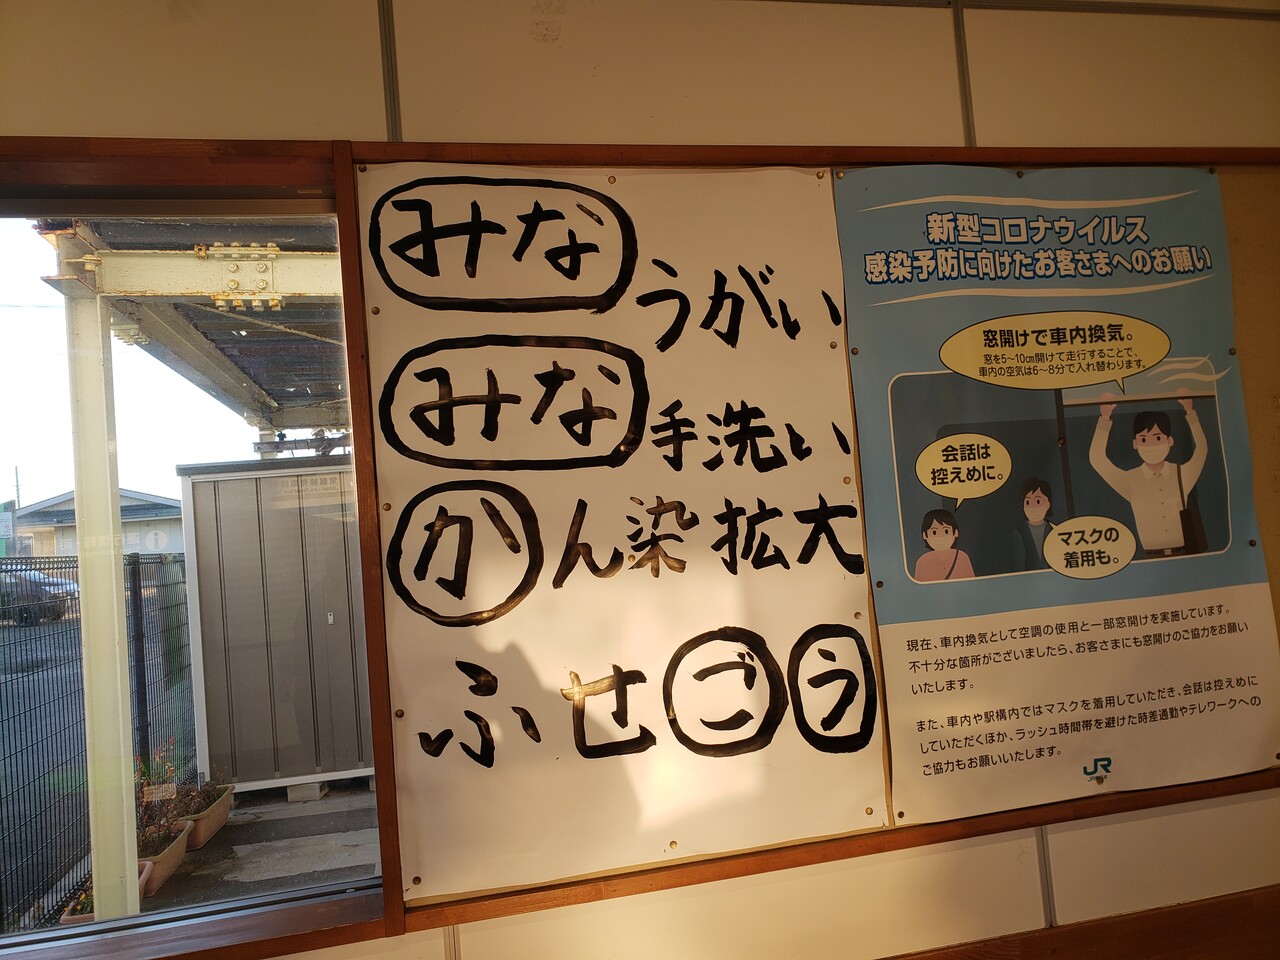 みな
うがい
みな
手洗い
かん染拡大
ふせごう
新型コロナウイルス
感染予防に向けたお客さまへのお願い
窓開けで車内換気。
窓を5～10cm開けて走行することで、
車内の空気は6～8分で入れ替わります。
会話は
控えめに。
マスクの
着用も。
現在、車内換気として空調の使用と一部窓開けを実施しています。
不十分な箇所がございましたら、お客さまにも窓開けのご協力をお願い
いたします。
また、車内や駅構内ではマスクを着用していただき、会話は控えめに
していただくほか、ラッシュ時間帯を避けた時差通勤やテレワークへの
ご協力もお願いいたします。
JR